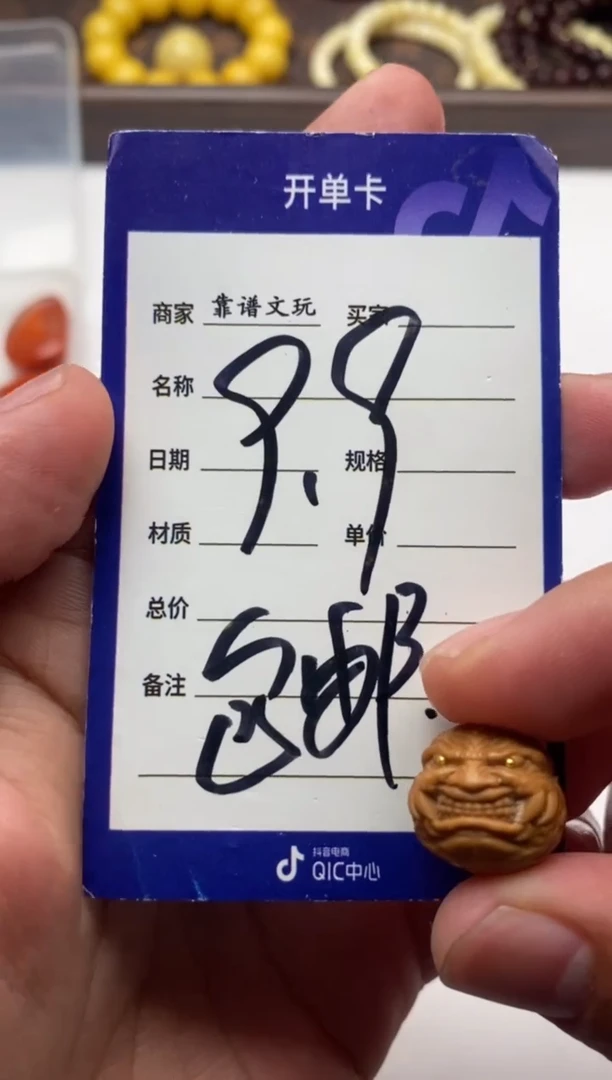 开单卡
商家 靠谱文玩 买家
名称
9.9
日期 规格
材质 单价
总价
包邮.
备注
抖音电商
QIC中心